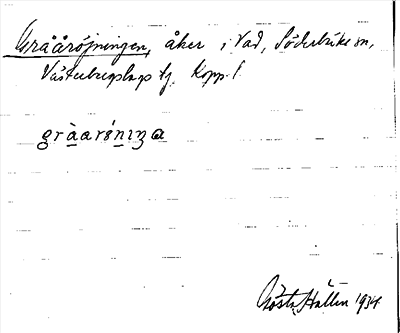 Gråäröjningen, åker i Vad, Söderbärke sn,
Västerbergslags tg. Kopp. l.
gràarǿnıŋa
Gösta Hallén 1934